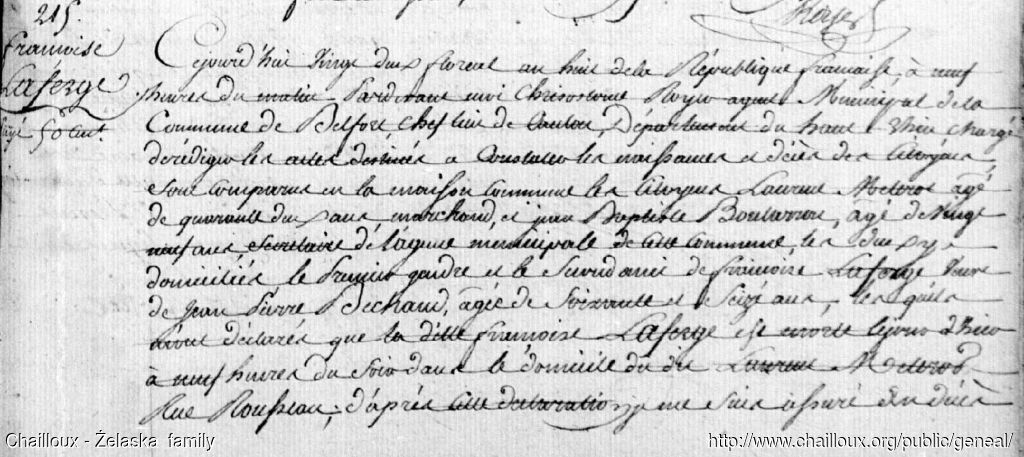 215.
françoise
Laferge
Cejourd'hui vingt deux floreal an huit de la République française, à neuf
heures du matin Pardevant moi Chrisostome Royer agent Municipal de la
Commune de Belfort, Chef lieu de Canton, Département du haut Rhin chargé
de rédiger les actes destinés a Constater les naissances et décès des Citoyens
sont comparus en la maison commune les Citoyens Laurent Meclerot âgé
de quarante deux ans marchand, et jean Baptiste âgé de vingt
neuf ans, Secretaire de l'agence municipale de cette commune, les deux y
domiciliés le premier gendre et le Second ami de françoise Laferge Veuve
de Jean Pierre Bechaud, agée de Soixante et Seize ans, les quels
m'ont déclarés que la ditte françoise Laferge est morte le jour d'hier
à neuf heures du Soir dans le domicile du dit Laurent Meclerot
Rue Rousseau; d'après cette declaration je me suis assuré du décès
Chailloux - Żelaska family
http://www.chailloux.org/public/geneal/